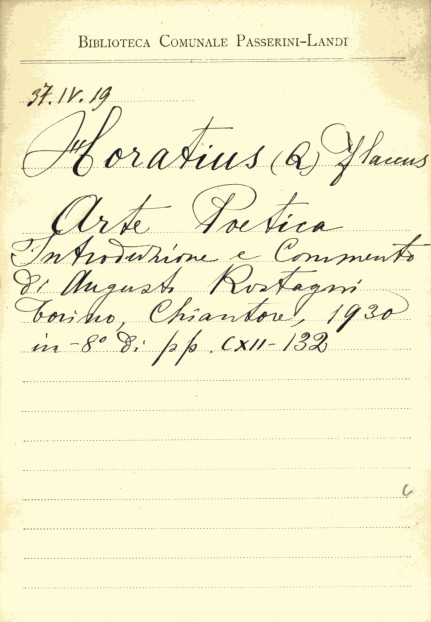 BIBLIOTECA COMUNALE PASSERINI-LANDI
37.IV.19
Horatius (Q) Flaccus
Arte Poetica
Introduzione e Commento
di Augusto Rostagni
Torino, Chiantore, 1930
in-8° di pp. CXII-132
6